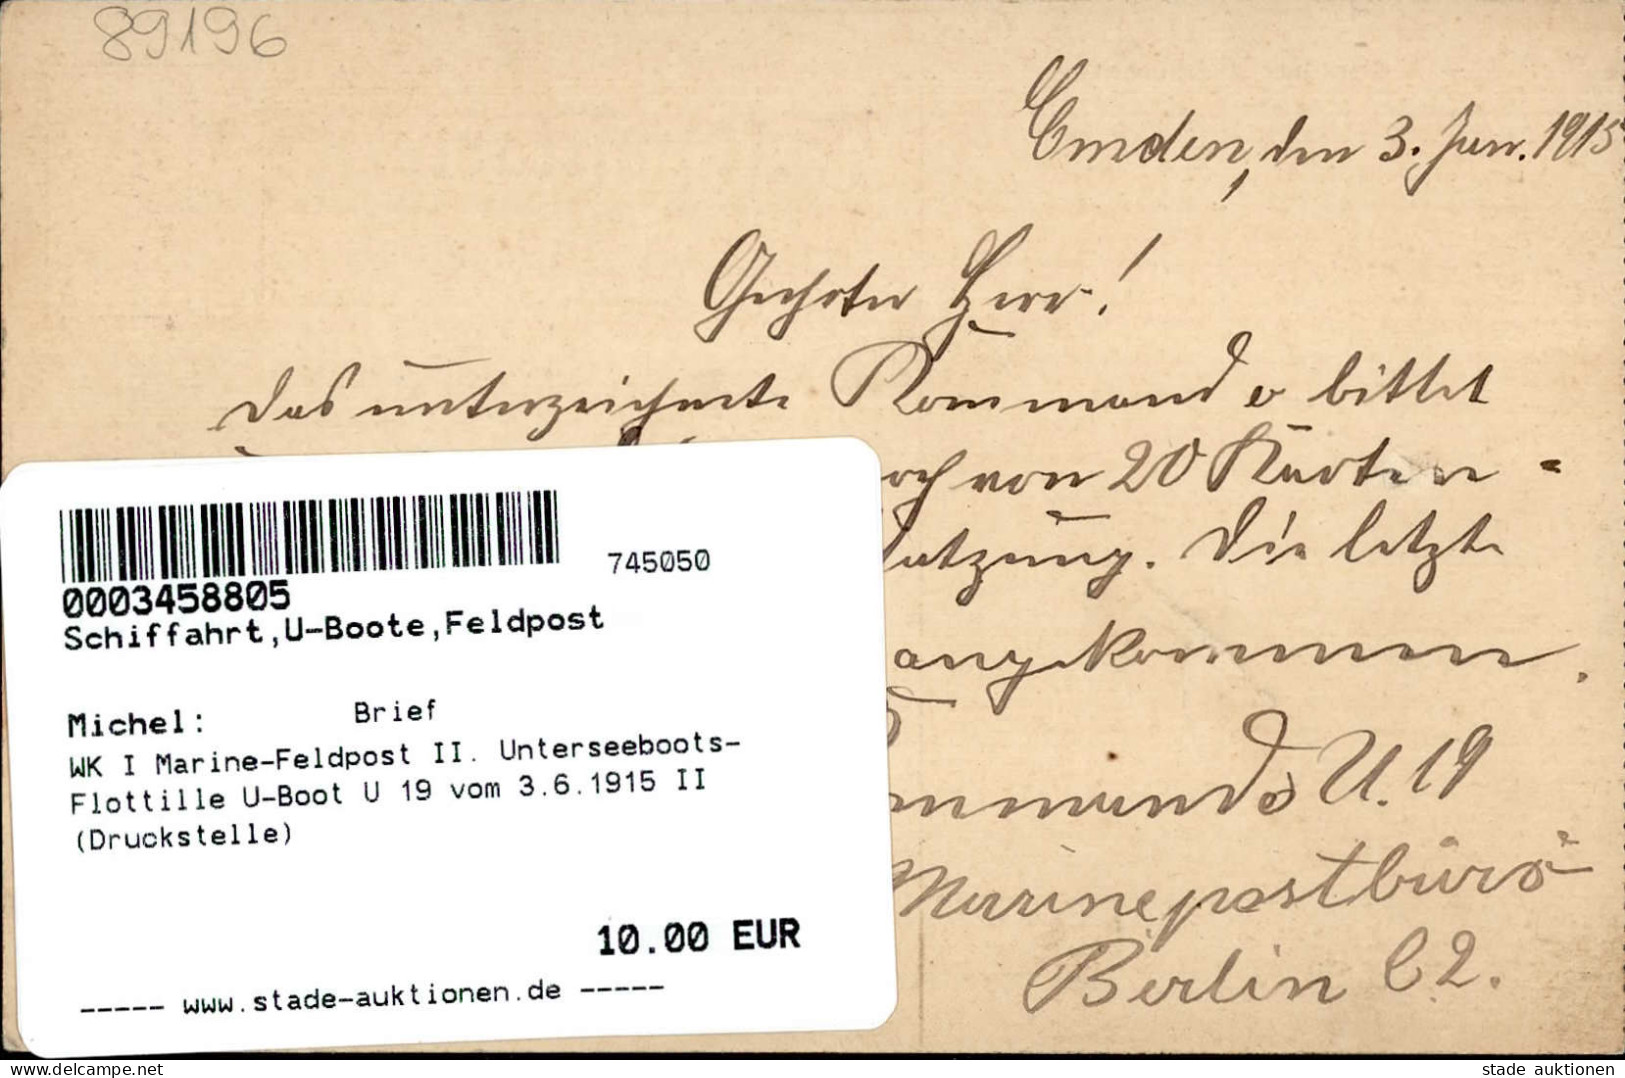 89196
Emden, den 3. Jun. 1915
Geehrter Herr!
Das unterzeichnete Kommando bittet
noch von 20 Karten -
angekommen.
Die letzte
Kommando U. 19
Marinepostbüro
Berlin C 2.
745050
0003458805
Schiffahrt,U-Boote,Feldpost
Michel: Brief
WK I Marine-Feldpost II. Unterseeboots-
Flottille U-Boot U 19 vom 3.6.1915 II
(Druckstelle)
10.00 EUR
----- www.stade-auktionen.de -----
www.delcampe.net
stade auktionen